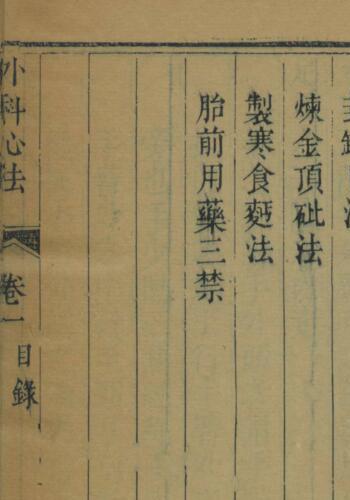 煉金頂砒法
製寒食麫法
胎前用藥三禁
外科心法
卷一
目錄